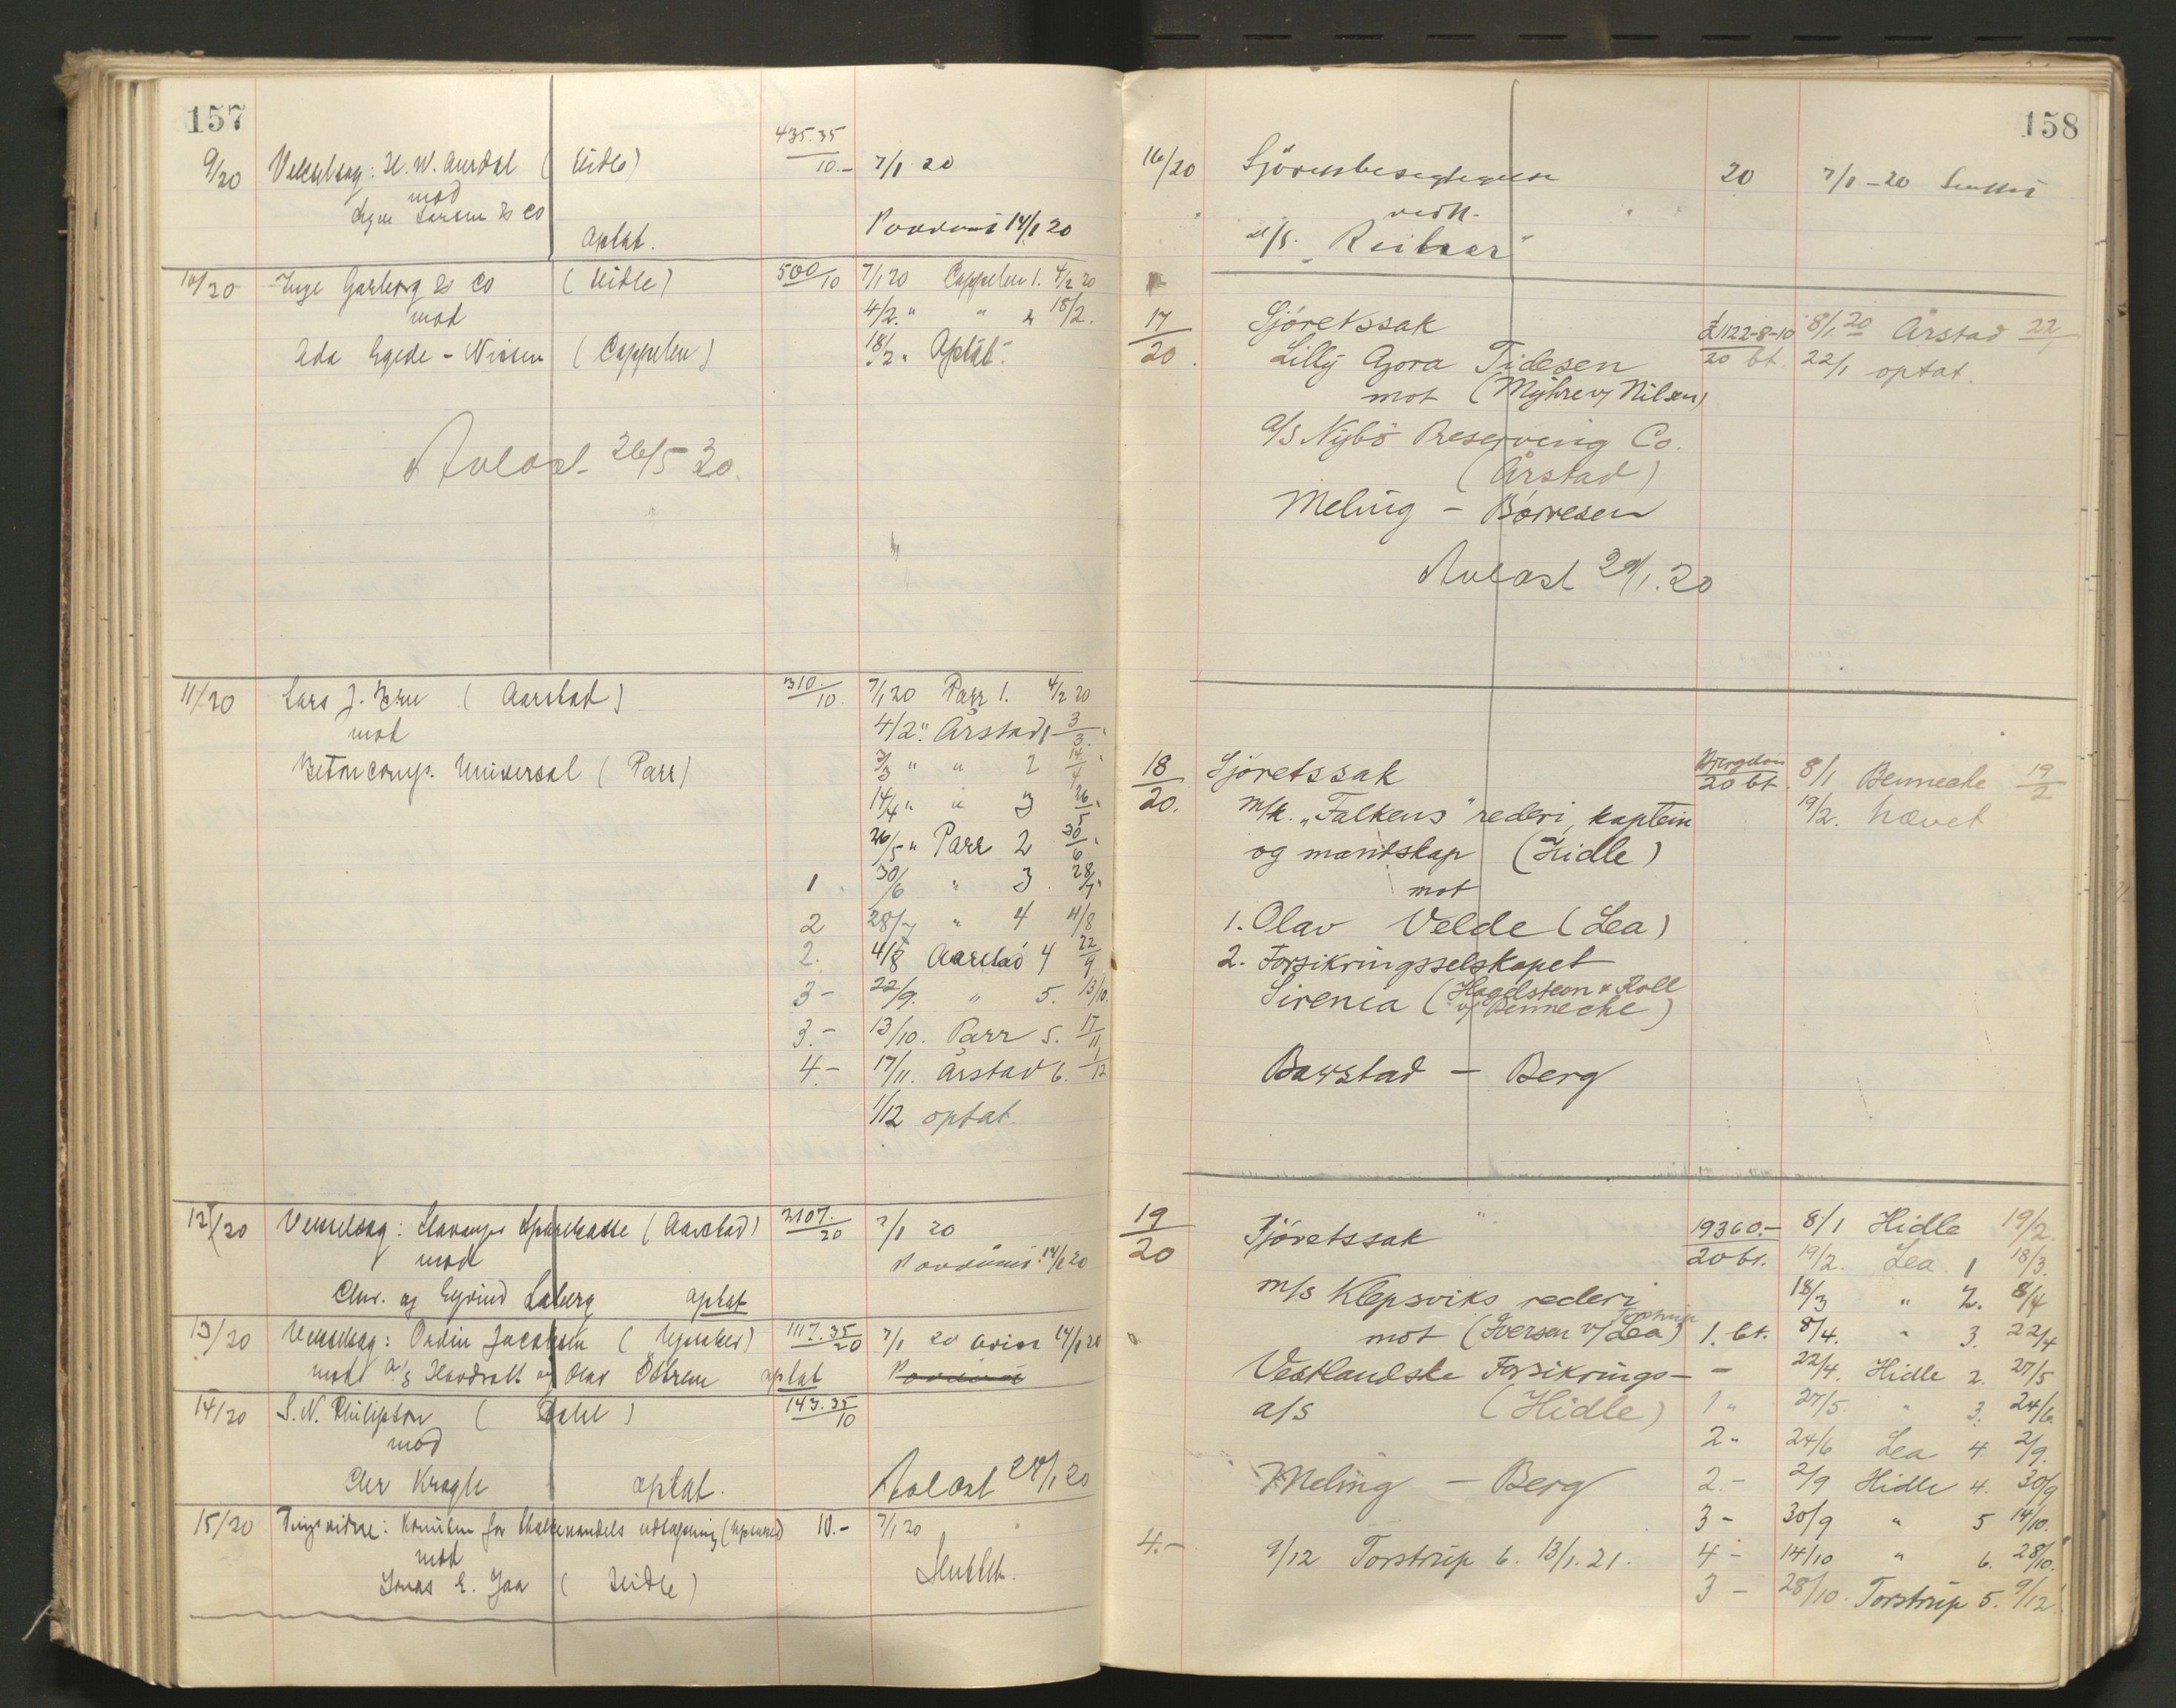 157
435.35
9/20 H. W. Aurdal ( Hidle) 10.- 7/1 20
mod
Larsen & Co
optat. 14/1 20
10/20 Inge Garborg & Co ( Hidle ) 500/10 7/1 20 Cappelen 1. 4/2 20
mod 4/2 " " 2 18/2.
Ada Egede-Nissen ( Cappelen ) 18/2 " Optat.
Avlast 26/5 20.
11/20 Lars J. ( Aarstad ) 310./10. 7/1 20 Parr 1. 4/2 20
mod 4/2 " Årstad 1 3/3 "
Betoncomp. Universal ( Parr ) 3/3 " " 2 14/4 "
14/4 " " 3 26/5 "
26/5 " Parr 2 30/6 "
1 30/6 " 3 28/7 "
2 28/7 " 4 4/8
2. 4/8 Aarstad 4 22/9
3 - 22/9. " 5. 13/10.
3.- 13/10. Parr 5. 17/11
4.- 17/11. Årstad 6. 1/12
1/12 optat.
12/20 Stavanger Sparekasse ( Aarstad ) 2107./20 7/1 20
mod 14/1 20
Chr. og Eyvind Laberg optat
13/20 Odin Jacobsen 1117.35/20 7/1 20 14/1 20
mod A/S og Olav Östrem optat
14/20 S. N. Philipson ( Dahl ) 143.35/10
mod
Chr Kragh optat. Avlast 28/1 20
15/20 10.- 7/1 20
mod
Jonas E. Jaa ( Hidle ) Sluttet.
158
16/20 20 7/1 - 20 Sluttet
vedk.
17/20. Sjøretssak £1122-8-10/20 bt. 8/1 20 Årstad 22/1
Lilly Agora Tidesen 22/1 optat.
mot (Myhre v/ Nilsen)
a/s Nybö Preserving Co.
( Årstad )
Meling - Børresen
Avlast 29/1. 20
18/20. Sjøretssak Bjergeløn/20 bt. 8/1 Bennecke 19/2
m/k. „Falkens" rederi, kaptein 19/2. hævet
og mandskap (Hidle)
mot
1. Olav Velde (Lea)
2. Forsikringsselskapet
Sirenia (Hagelsteen & Roll
v/ Bennecke)
Barstad - Berg
19/20 Sjøretssak 19360.-/20 bt. 8/1 Hidle 19/2.
19/2. Lea 1 18/3.
m/s Klepsviks rederi 18/3 " 2. 8/4
mot (Iversen v/ Lea) 1. bt. 8/4. " 3. 22/4
Vestlandske Forsikrings- - 22/4. Hidle 2. 27/5
a/s (Hidle) 1 " 27/5. " 3. 24/6.
2 - 24/6 Lea 4 2/9.
Meling - Berg 2. - 2/9 Hidle 4. 30/9
3 - 30/9 " 5 14/10.
4.- 9/12 Torstrup 6. 13/1. 21. 4 - 14/10 " 6. 28/10.
3 - 28/10. Torstrup 5. 9/12.